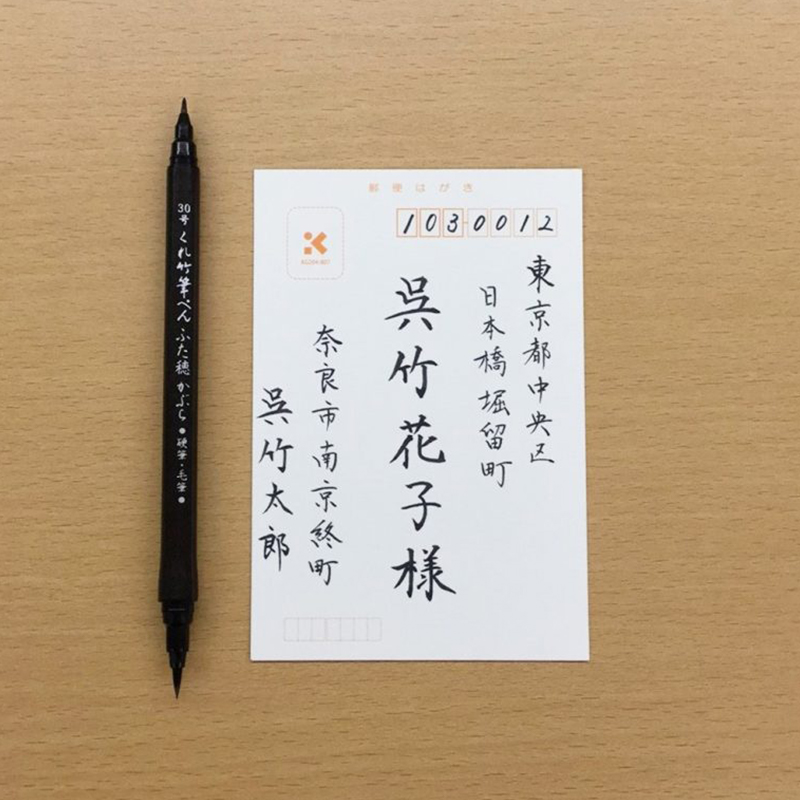 郵便はがき
1030012
東京都中央区
日本橋堀留町
呉竹花子様
奈良市南京終町
呉竹太郎
30号 くれ竹筆ぺん ふた穂 かぶら ●硬筆・毛筆●